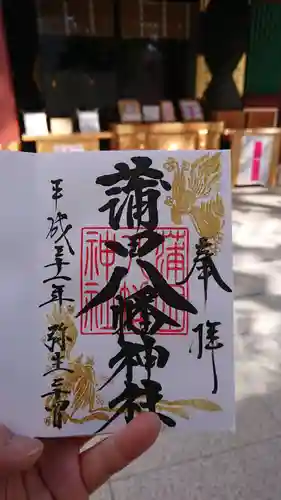 奉拝
蒲田八幡神社
蒲田八幡神社
平成三十一年 弥生三日